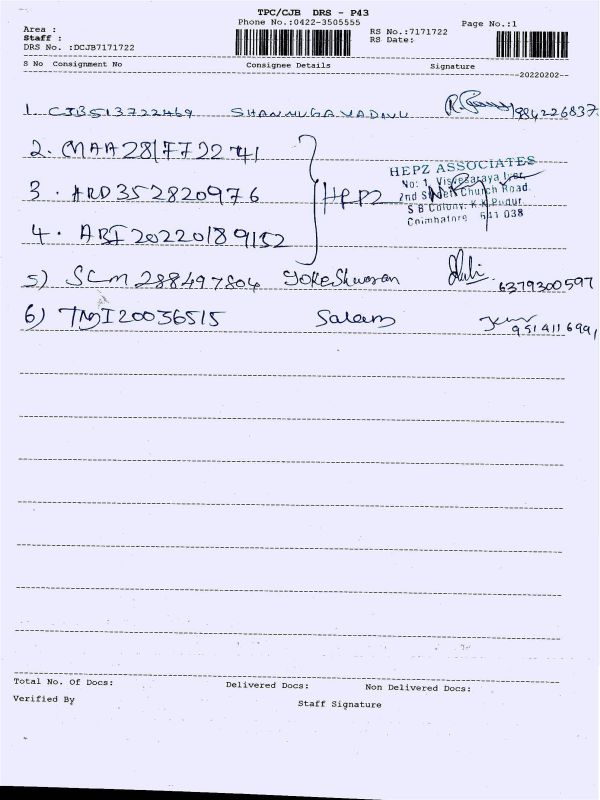 TPC/CJB DRS - P43
Phone No.:0422-3505555
Page No.:1
Area :
Staff :
DRS No. :DCJB7171722
RS No.:7171722
RS Date:
S No Consignment No Consignee Details Signature
20220202
1. CJB513722469 SHANMUGAVADIVU 984226837
2. MAA281772241
3. ARD352820976 HEPZ
4. ABI20220189152
HEPZ ASSOCIATES
No: 1, Visvesaraya Iyer,
2nd Street Church Road,
S B Colony, K.K Pudur,
Coimbatore 641 038
5) SLM288497804 yokeshwaran 6379300597
6) Salem
9514116991
Total No. Of Docs: Delivered Docs: Non Delivered Docs:
Verified By Staff Signature